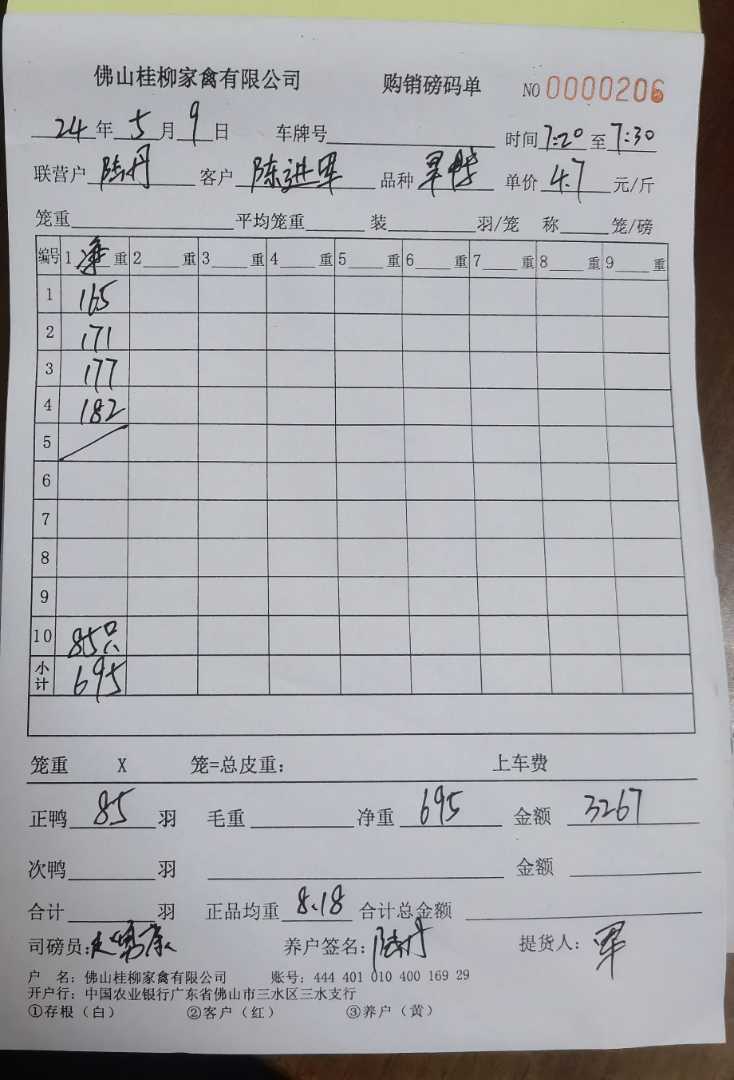 佛山桂柳家禽有限公司 购销磅码单 NO 0000206
24年5月9日 车牌号 时间7:20至7:30
联营户 陆丹 客户 陈进军 品种 单价 4.7 元/斤
笼重 平均笼重 装 羽/笼 称 笼/磅
编号 1 净 重 2 重 3 重 4 重 5 重 6 重 7 重 8 重 9 重
1 165
2 171
3 177
4 182
5
6
7
8
9
10 85只
小计 695
笼重 X 笼=总皮重: 上车费
正鸭 85 羽 毛重 净重 695 金额 3267
次鸭 羽 金额
合计 羽 正品均重 8.18 合计总金额
司磅员: 养户签名: 陆丹 提货人: 军
户 名: 佛山桂柳家禽有限公司 账号: 444 401 010 400 169 29
开户行: 中国农业银行广东省佛山市三水区三水支行
①存根(白) ②客户(红) ③养户(黄)